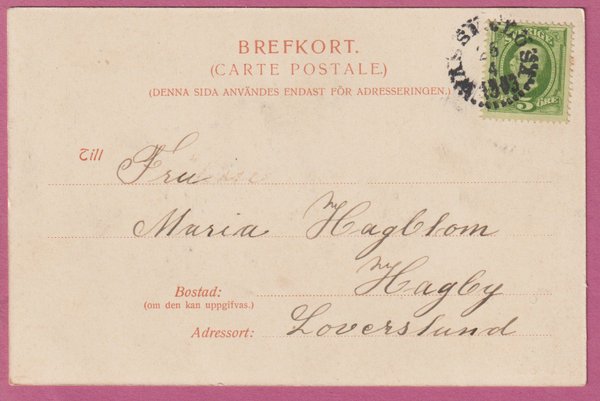 BREFKORT.
(CARTE POSTALE.)
(DENNA SIDA ANVÄNDES ENDAST FÖR ADRESSERINGEN.)
SVERIGE
5 ÖRE
Till
Fru
Maria Hagblom
Bostad:
Ny Hagby
(om den kan uppgifvas.)
Adressort:
Loverslund